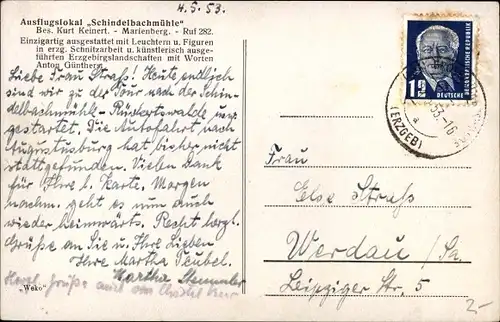 4.5.53.
Ausflugslokal „Schindelbachmühle“
Bes. Kurt Keinert. - Marienberg. - Ruf 282.
Einzigartig ausgestattet mit Leuchtern u. Figuren
in erzg. Schnitzarbeit u. künstlerisch ausge-
führten Erzgebirgslandschaften mit Worten
Anton Günthers.
Liebe Frau Strass! Heute endlich
sind wir zu der Tour nach der Schin-
delbachmühle - Rückerswalde
gestartet. Die Autofahrt nach
Augustusburg hat bisher nicht
stattgefunden. Vielen Dank
für Ihre l. Karte. Morgen
nachm. geht es nun auch
wieder heimwärts. Recht herzl.
Grüsse an Sie u. Ihre Lieben
Ihre Martha Teubel.
Martha
Herzl. Grüße auch von
„Weko“
12
DEUTSCHE
(ERZGEB)
a
53.-16
Frau
Else Strass
Werdau /Sa.
Leipziger Str. 5
2-